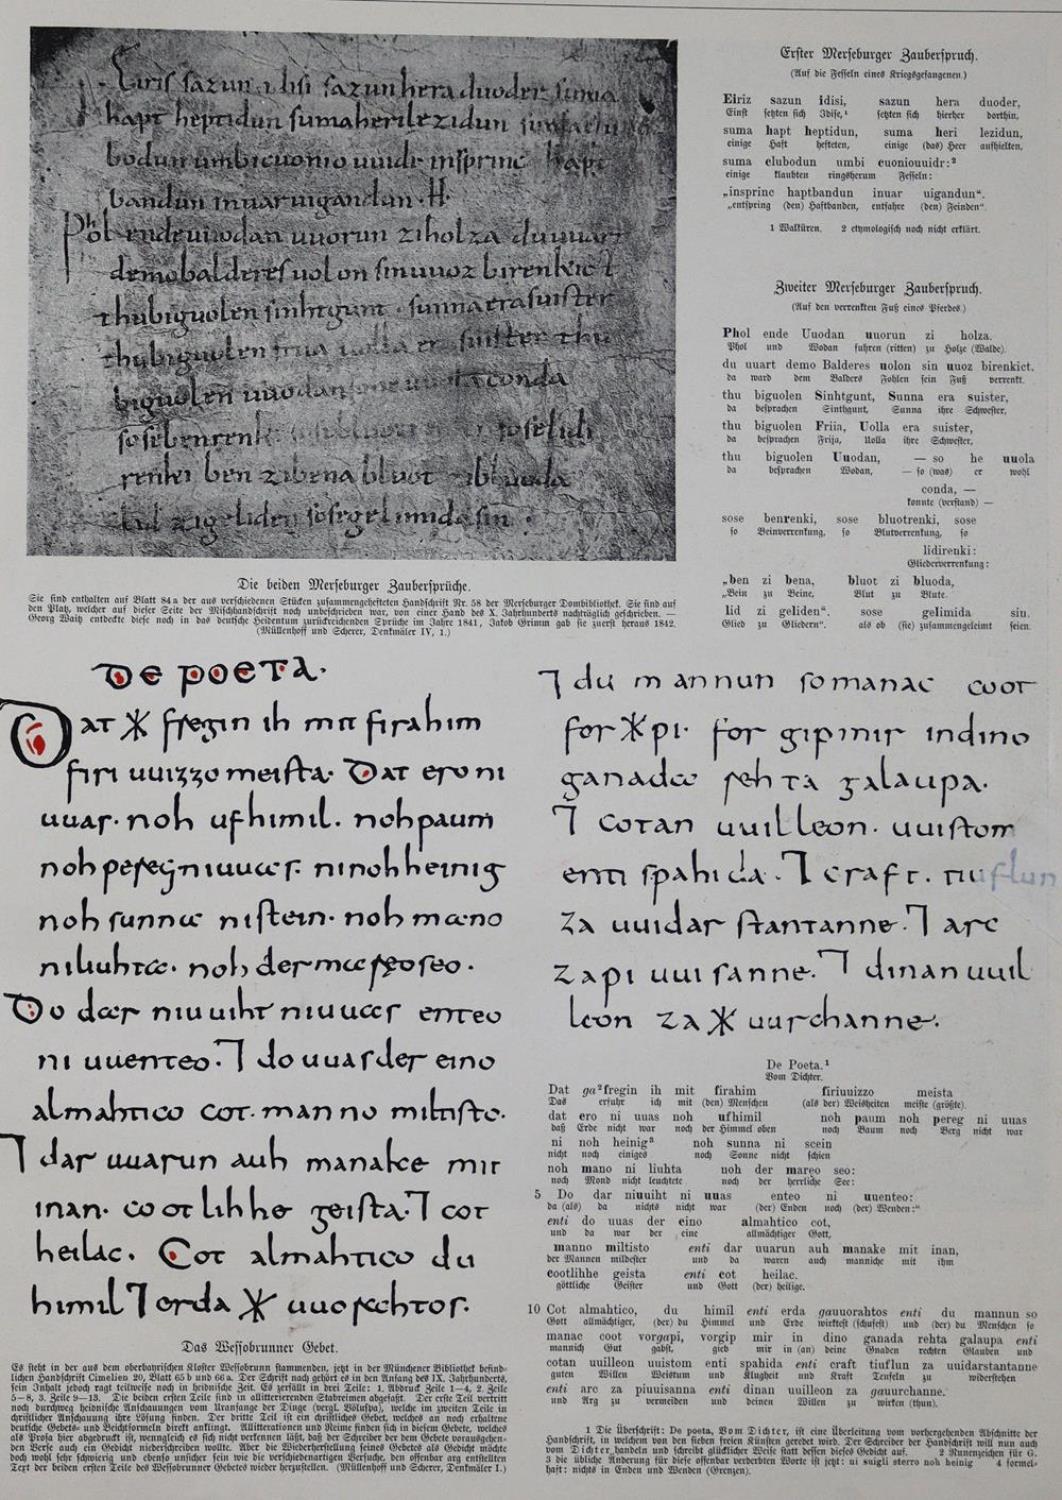 Eiris sazun idisi sazun hera duoder suma
hapt heptidun suma heri lezidun suma clu
bodun umbicuonio uuidi insprinc hapt
bandun inuar uigandun · H ·
Phol ende uuodan uuorun zi holza du uuart
demo balderes uolon sin uuoz birenkict
thu biguolen sinhtgunt · sunna era suister
thu biguolen friia uolla era suister thu
biguolen uuodan so he uuola conda
sose benrenki sose bluotrenki sose lidi
renki ben zi bena bluot zi bluoda
lid zi geliden sose gelimida sin ·
Die beiden Merseburger Zaubersprüche.
Sie sind enthalten auf Blatt 84a der aus verschiedenen Stücken zusammengehefteten Handschrift Nr. 58 der Merseburger Dombibliothek. Sie sind auf
den Platz, welcher auf dieser Seite der Mischhandschrift noch unbeschrieben war, von einer Hand des X. Jahrhunderts nachträglich geschrieben. —
Georg Waitz entdeckte diese noch in das deutsche Heidentum zurückreichenden Sprüche im Jahre 1841, Jakob Grimm gab sie zuerst heraus 1842.
(Müllenhoff und Scherer, Denkmäler IV, 1.)
Erster Merseburger Zauberspruch.
(Auf die Fesseln eines Kriegsgefangenen.)
Eiriz sazun idisi, sazun hera duoder,
Einst setzten sich Idise,¹ setzten sich hierher dorthin,
suma hapt heptidun, suma heri lezidun,
einige Haft hefteten, einige (das) Heer aufhielten,
suma clubodun umbi cuoniouuidr:²
einige klaubten ringsherum Fesseln:
„insprinc haptbandun inuar uigandun“.
„entspring (den) Haftbanden, entfahre (den) Feinden“.
1 Walküren. 2 etymologisch noch nicht erklärt.
Zweiter Merseburger Zauberspruch.
(Auf den verrenkten Fuß eines Pferdes.)
Phol ende Uuodan uuorun zi holza.
Phol und Wodan fuhren (ritten) zu Holze (Walde).
du uuart demo Balderes uolon sin uuoz birenkict.
da ward dem Balders Fohlen sein Fuß verrenkt.
thu biguolen Sinhtgunt, Sunna era suister,
da besprachen Sinthgunt, Sunna ihre Schwester,
thu biguolen Friia, Uolla era suister,
da besprachen Frija, Uolla ihre Schwester,
thu biguolen Uuodan, — so he uuola
da besprachen Wodan, — so (was) er wohl
conda, —
konnte (verstand) —
sose benrenki, sose bluotrenki, sose
so Beinverrenkung, so Blutverrenkung, so
lidirenki:
Gliederverrenkung:
„ben zi bena, bluot zi bluoda,
„Bein zu Beine, Blut zu Blute,
lid zi geliden“. sose gelimida sin.
Glied zu Gliedern“. als ob (sie) zusammengeleimt seien.
De poeta.
Dat ᚷ fregin ih mit firahim
firi uuizzo meista. Dat ero ni
uuas. noh ufhimil. noh paum
noh peregniuuæs. ninohheinig
noh sunnæ nistein. noh mæno
niliuhtæ. noh dermæreoseo.
Do dær niuuiht niuuæs enteo
ni uuenteo. ⁊ do uuas der eino
almahtico cot. manno miltisto.
⁊ dar uuarun auh manake mit
inan. cootlihhe geista. ⁊ cot
heilac. Cot almahtico du
himil ⁊ erda ᚷ uuorahtos.
⁊ du mannun somanac coot
forᚷpi. for gipmir indino
ganadæ rehta galaupa.
⁊ cotan uuilleon. uuistom
enti spahida. ⁊ craft. tiuflun
za uuidar stantanne. ⁊ arc
zapi uuisanne. ⁊ dinan uuil
leon za ᚷ uurchanne.
Das Wessobrunner Gebet.
Es steht in der aus dem oberbayrischen Kloster Wessobrunn stammenden, jetzt in der Münchener Bibliothek befind-
lichen Handschrift Cimelien 20, Blatt 65 b und 66 a. Der Schrift nach gehört es in den Anfang des IX. Jahrhunderts,
sein Inhalt jedoch ragt teilweise noch in heidnische Zeit. Es zerfällt in drei Teile: 1. Abdruck Zeile 1—4, 2. Zeile
5—8, 3. Zeile 9—13. Die beiden ersten Teile sind in allitterierenden Stabreimen abgefaßt. Der erste Teil vertritt
noch durchweg heidnische Anschauungen vom Uranfange der Dinge (vergl. Völuspa), welche im zweiten Teile in
christlicher Anschauung ihre Lösung finden. Der dritte Teil ist ein christliches Gebet, welches an noch erhaltene
deutsche Gebets- und Beichtformeln direkt anklingt. Allitterationen und Reime finden sich in diesem Gebete, welches
als Prosa hier abgedruckt ist, wenngleich es sich nicht verkennen läßt, daß der Schreiber der dem Gebete vorausgehen-
den Verse auch ein Gedicht niederschreiben wollte. Aber die Wiederherstellung seines Gebetes als Gedicht möchte
doch wohl sehr schwierig und ebenso unsicher sein wie die verschiedenartigen Versuche, den offenbar arg entstellten
Text der beiden ersten Teile des Wessobrunner Gebetes wieder herzustellen. (Müllenhoff und Scherer, Denkmäler I.)
De Poeta.¹
Vom Dichter.
Dat ga²fregin ih mit firahim firiuuizzo meista
Das erfuhr ich mit (den) Menschen (als der) Weisheiten meiste (größte).
dat ero ni uuas noh ufhimil noh paum noh pereg ni uuas
daß Erde nicht war noch der Himmel oben noch Baum noch Berg nicht war
ni noh heinig³ noh sunna ni scein
nicht noch einiges noch Sonne nicht schien
noh mano ni liuhta noh der mareo seo:
noch Mond nicht leuchtete noch der herrliche See:
5 Do dar niuuiht ni uuas enteo ni uuenteo:
da (als) da nichts nicht war (der) Enden noch (der) Wenden:⁴
enti do uuas der eino almahtico cot,
und da war der eine allmächtiger Gott,
manno miltisto enti dar uuarun auh manake mit inan,
der Mannen mildester und da waren auch manniche mit ihm
cootlihhe geista enti cot heilac.
göttliche Geister und Gott (der) heilige.
10 Cot almahtico, du himil enti erda gauuorahtos enti du mannun so
Gott allmächtiger, (der) du Himmel und Erde wirktest (schufest) und (der) du Menschen so
manac coot vorgapi, vorgip mir in dino ganada rehta galaupa enti
mannich Gut gabst, gieb mir in (an) deine Gnaden rechten Glauben und
cotan uuilleon uuistom enti spahida enti craft tiuflun za uuidarstantanne
guten Willen Weistum und Klugheit und Kraft Teufeln zu widerstehen
enti arc za piuuisanna enti dinan uuilleon za gauurchanne.
und Arg zu vermeiden und deinen Willen zu wirken (thun).
1 Die Überschrift: De poeta, Vom Dichter, ist eine Überleitung vom vorhergehenden Abschnitte der
Handschrift, in welchem von den sieben freien Künsten geredet wird. Der Schreiber der Handschrift will nun auch
vom Dichter handeln und schreibt glücklicher Weise statt dessen dieses Gedicht auf. 2 Runenzeichen für G.
3 die übliche Änderung für diese offenbar verderbten Worte ist jetzt: ni suigli sterro noh heinig 4 formel-
haft: nichts in Enden und Wenden (Grenzen).